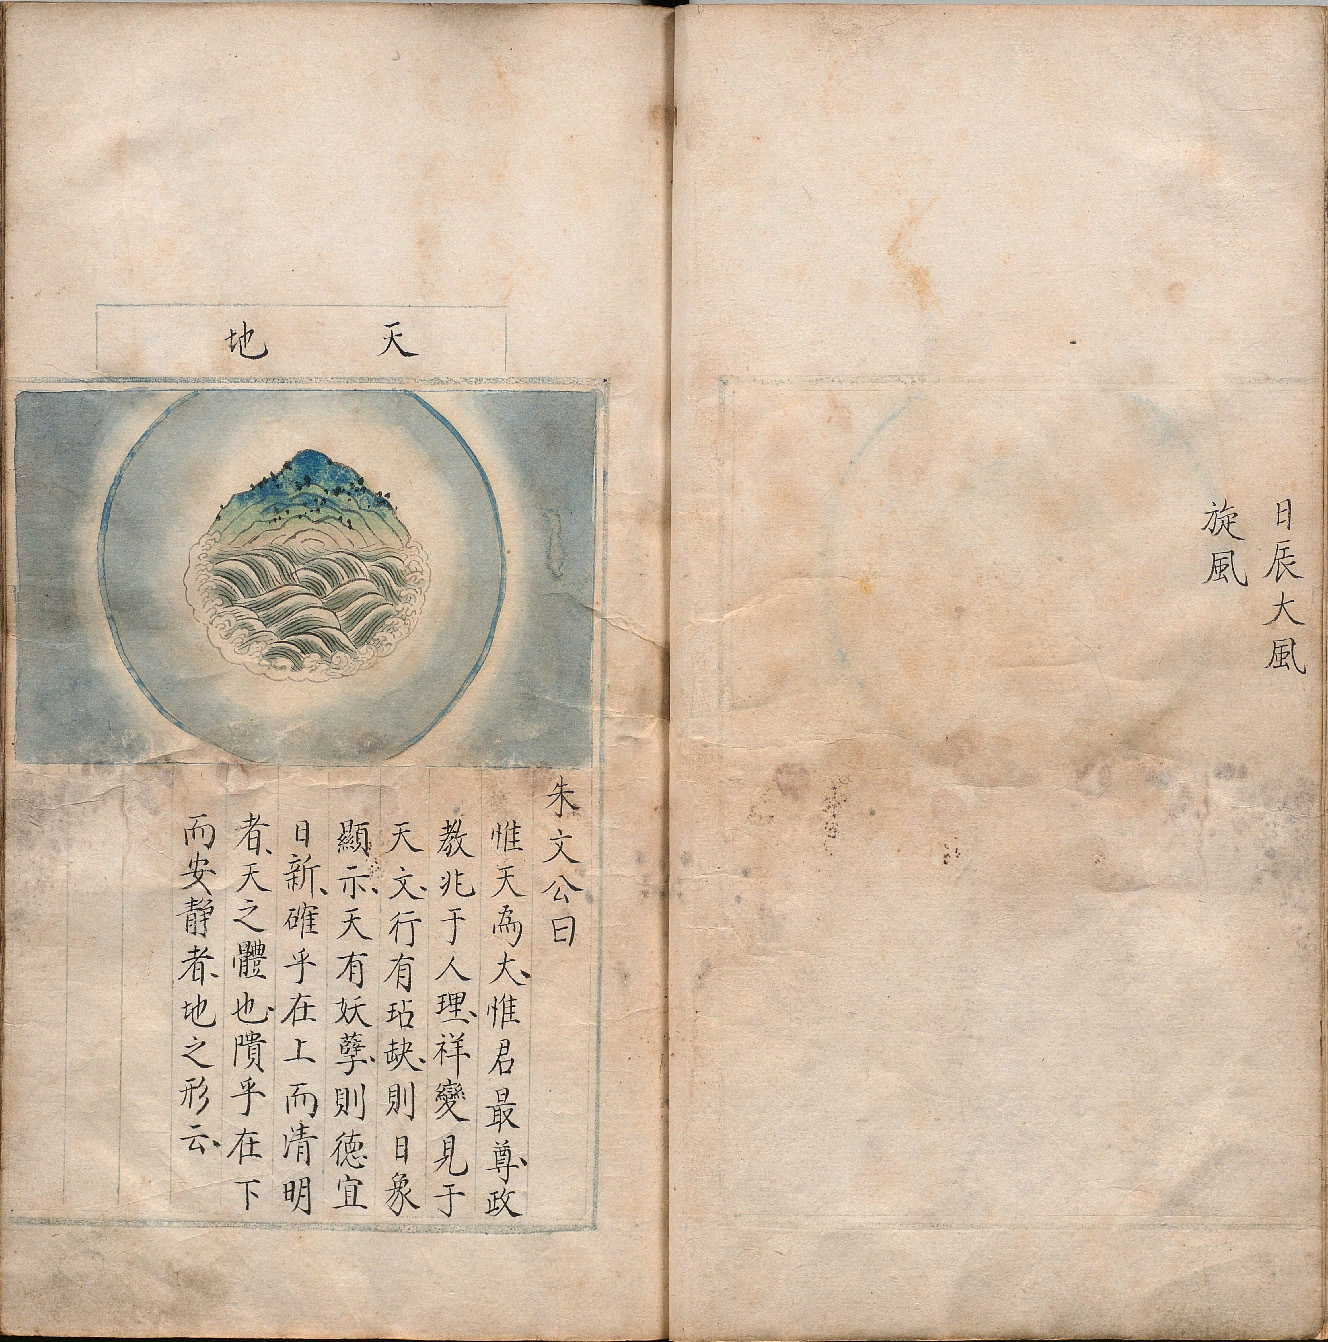 日辰大風
旋風
天地
朱文公曰
惟天為大、惟君最尊、政
教兆于人理、祥變見于
天文、行有玷缺、則日象
顯示、天有妖孽、則德宜
日新、確乎在上而清明
者、天之體也、隤乎在下
而安靜者、地之形云、